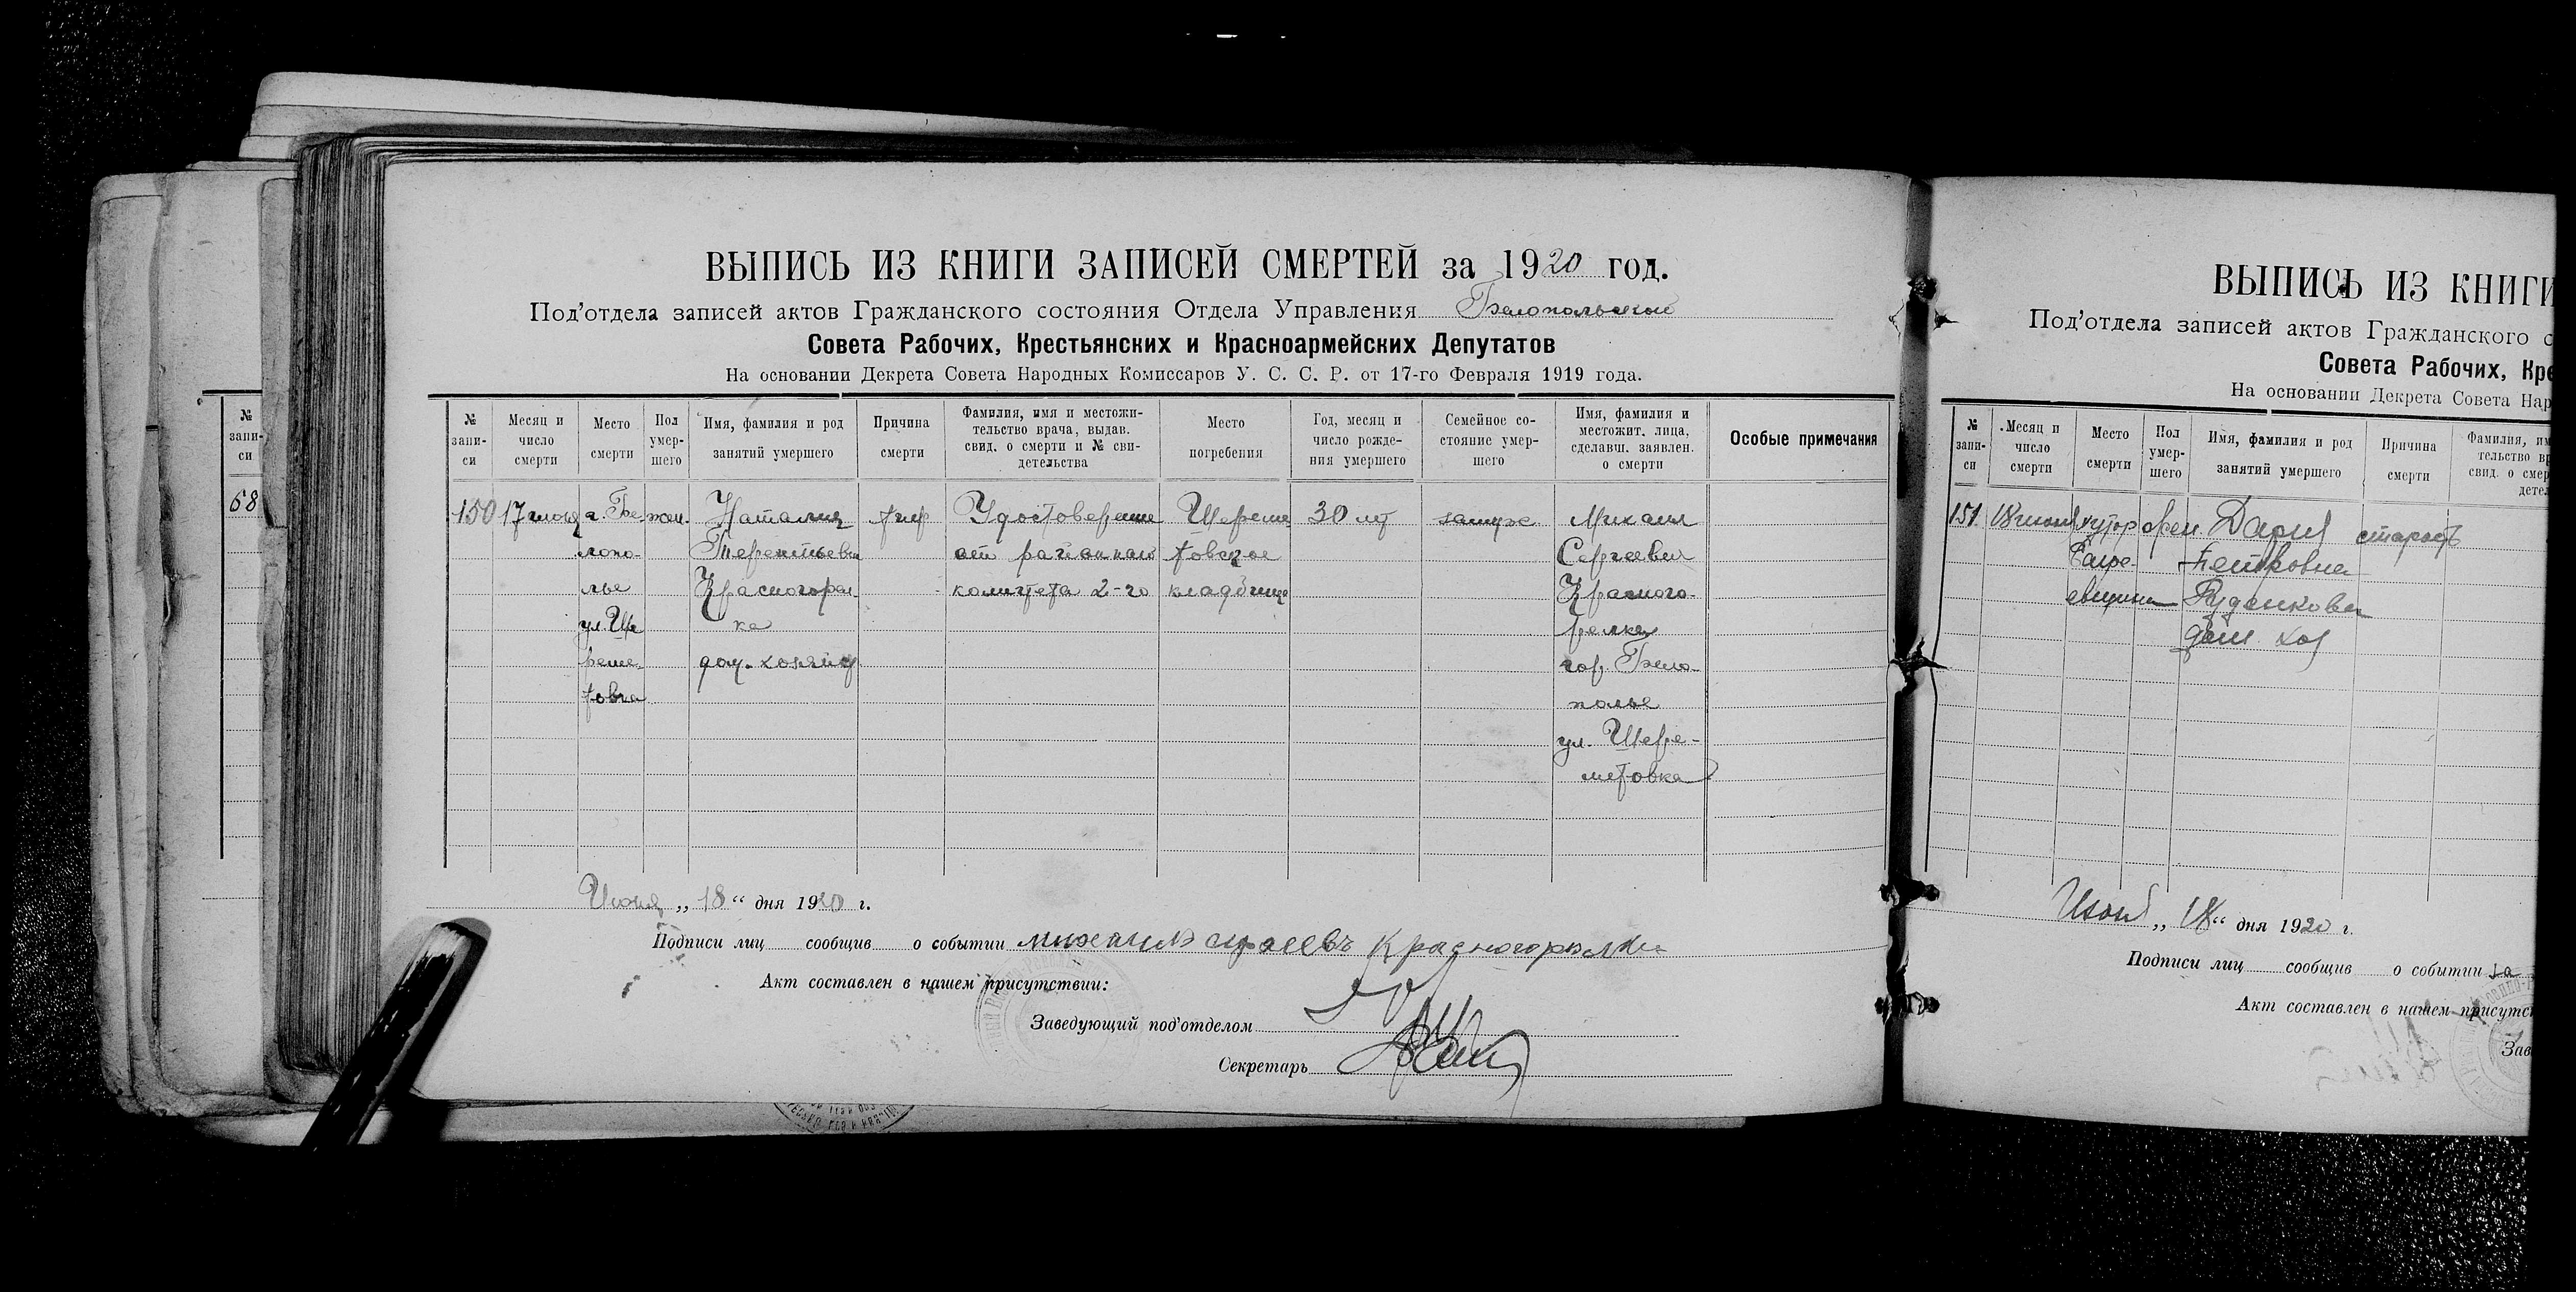 ВЫПИСЬ ИЗ КНИГИ ЗАПИСЕЙ СМЕРТЕЙ за 1920 год.
Под'отдела записей актов Гражданского состояния Отдела Управления Белопольский
Совета Рабочих, Крестьянских и Красноармейских Депутатов
На основании Декрета Совета Народных Комиссаров У. С. С. Р. от 17-го Февраля 1919 года.
№ запи- си
Месяц и число смерти
Место смерти
Пол умер- шего
Имя, фамилия и род занятий умершего
Причина смерти
Фамилия, имя и местожи- тельство врача, выдав. свид. о смерти и № сви- детельства
Место погребения
Год, месяц и число рожде- ния умершего
Семейное со- стояние умер- шего
Имя, фамилия и местожит. лица, сделавш. заявлен. о смерти
Особые примечания
150 17 июня г. Бе- жен. Наталия тиф Удостоверение Шереме 30 лет замуж. Михаил
лопо- Терентьевна от районного товское Сергеевич
лье Красногорел- комитета 2-го кладбище Красного-
ул. Ше ка релка
реме- дом. хозяйка гор. Бело-
товка полье
ул. Шере-
метовка
Июня „18“ дня 1920 г.
Подписи лиц сообщив о событии Михаилъ Красногорелки
Акт составлен в нашем присутствии:
Заведующий под'отделом
Секретарь
№ запи- си
68
ВЫПИСЬ ИЗ КНИГИ
Под'отдела записей актов Гражданского с
Совета Рабочих, Кре
На основании Декрета Совета Нар
№ запи- си
Месяц и число смерти
Место смерти
Пол умер- шего
Имя, фамилия и род занятий умершего
Причина смерти
151 18 июня хутор жен. Дария старость
Петровна
Руденкова
дом. хоз
Июня „18“ дня 1920 г.
Подписи лиц сообщив о событии за
Акт составлен в нашем присутст
Зав